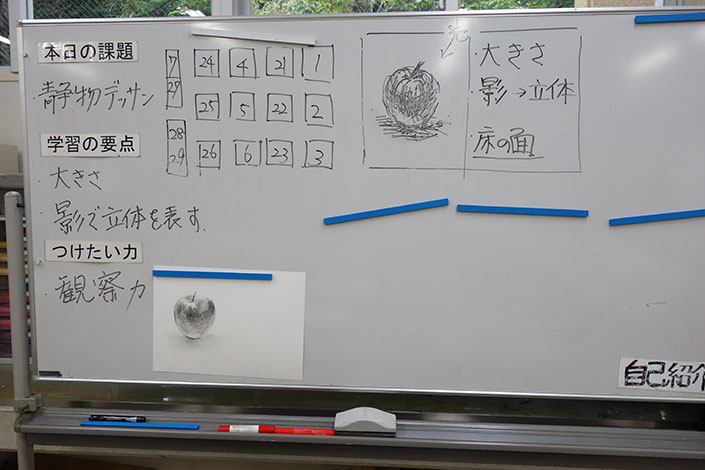 本日の課題
静物デッサン
学習の要点
・大きさ
・影で立体を表す。
つけたい力
・観察力
7 24 4 21 1
27 25 5 22 2
28
29 26 6 23 3
・大きさ
・影→立体
床の面
自己紹介